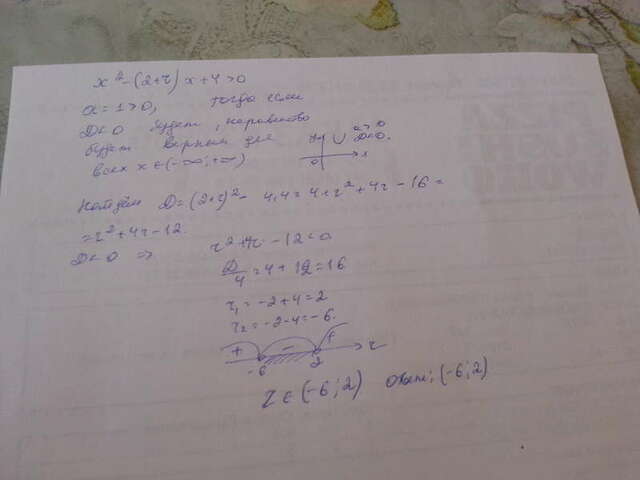 x² - (2+r)x + 4 > 0
a = 1 > 0, тогда если
D < 0 будет, неравенство
будет верным для
всех x ∈ (-∞; +∞)
y a > 0
D < 0.
0 x
Найдём D = (2+r)² - 4·4 = 4 + r² + 4r - 16 =
= r² + 4r - 12.
D < 0 => r² + 4r - 12 < 0
D/4 = 4 + 12 = 16
r₁ = -2 + 4 = 2
r₂ = -2 - 4 = -6.
+ - + r
-6 2
r ∈ (-6; 2) Ответ: (-6; 2)